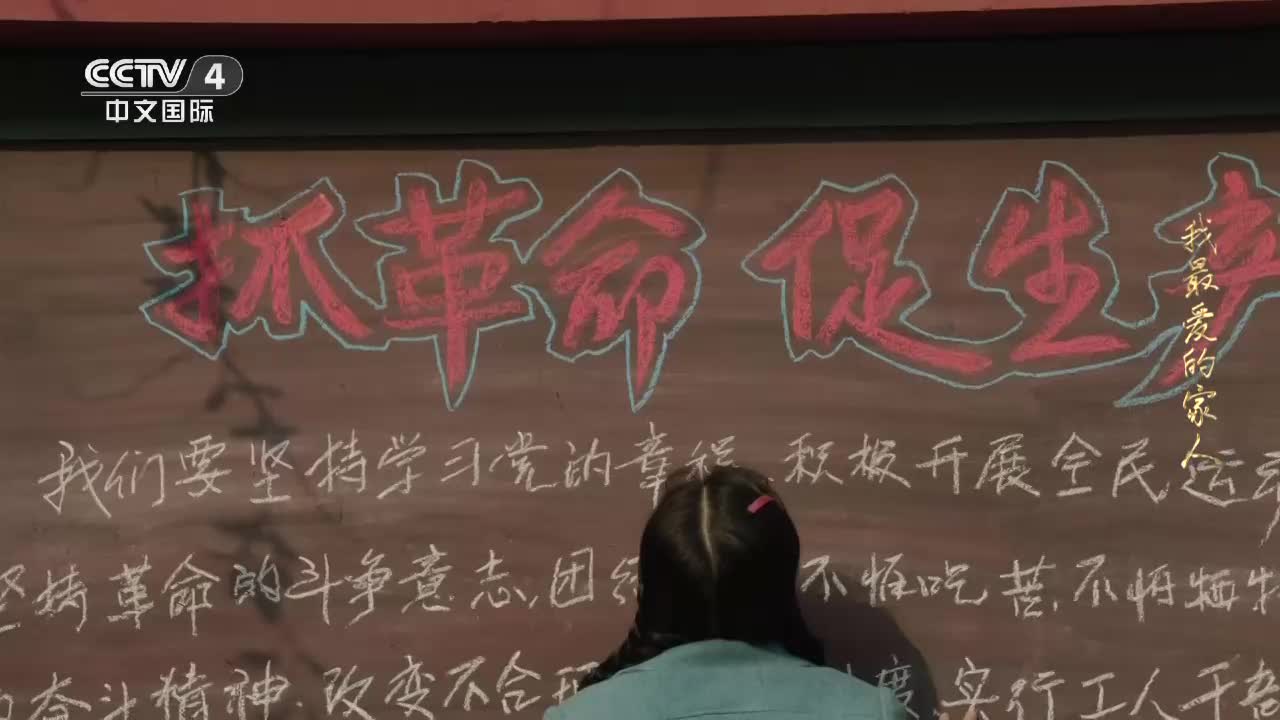 CCTV 4
中文国际
抓革命 促生产
我最爱的家人
我们要坚持学习党的章程、积极开展全民运动
坚持革命的斗争意志,团结 不怕吃苦、不怕牺牲
奋斗精神.改变不合理 度,实行工人干部